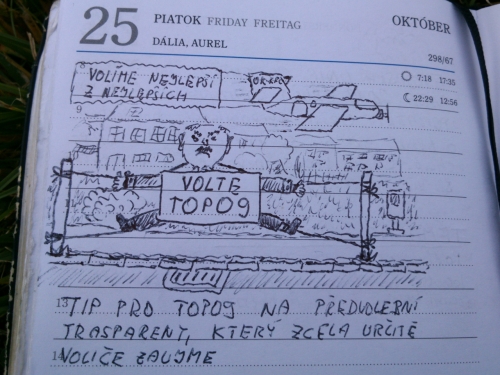 25 PIATOK FRIDAY FREITAG OKTÓBER
DÁLIA, AUREL
298/67
7:18 17:35
22:29 12:56
8
VOLÍME NEJLEPŠÍ
Z NEJLEPŠÍCH
9
VOLTE
TOPO9
13 TIP PRO TOPO9 NA PŘEDVOLEBNÍ
TRASPARENT, KTERÝ ZCELA URČITĚ
14 VOLIČE ZAUJME